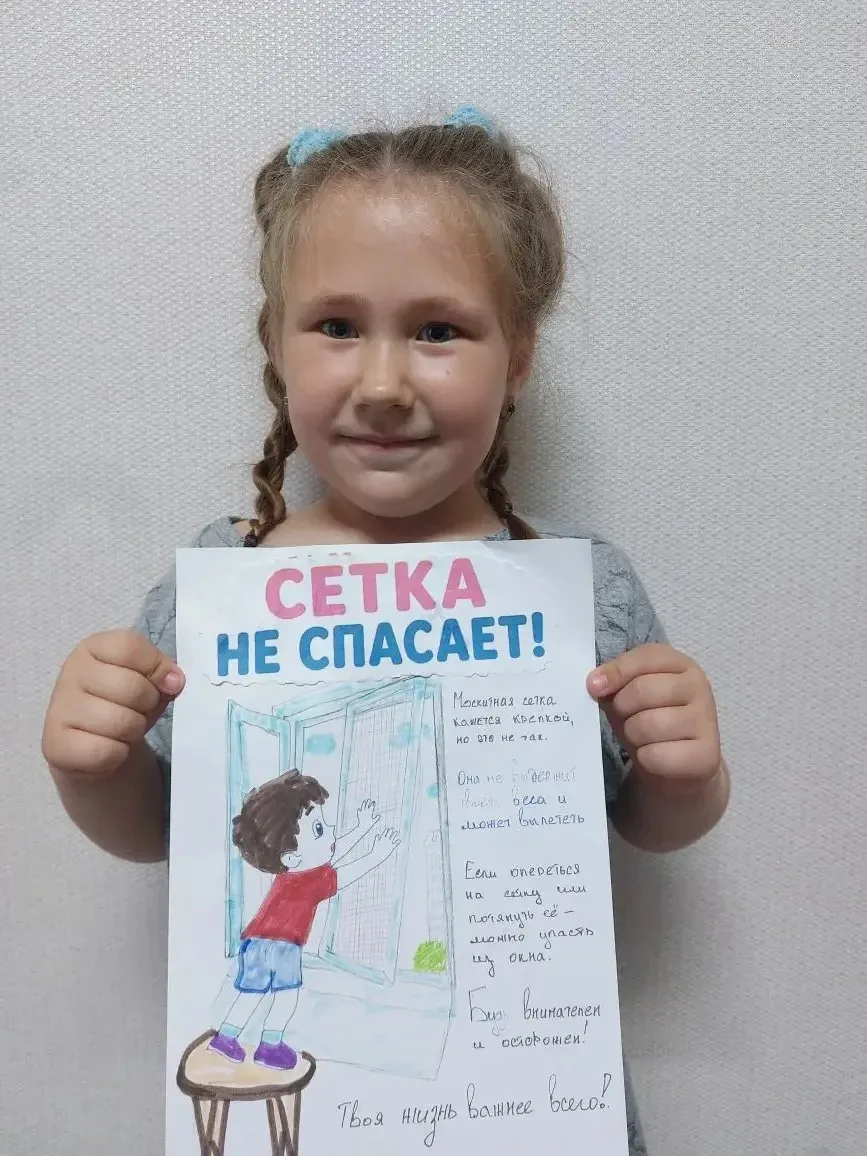 СЕТКА
НЕ СПАСАЕТ!
Москитная сетка
кажется крепкой,
но это не так.
Она не выдержит
веса и
может вылететь
Если опереться
на сетку или
потянуть её –
можно упасть
из окна.
Будь внимателен
и осторожен!
Твоя жизнь важнее всего!